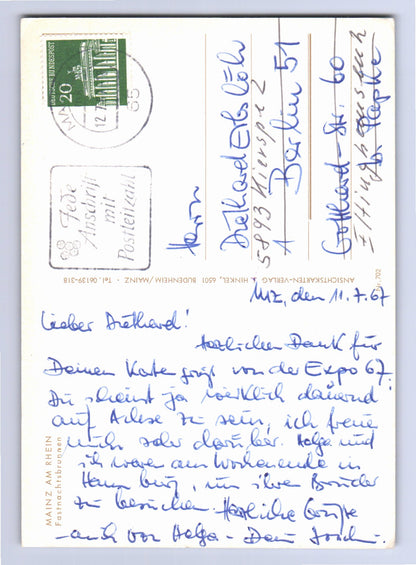 DEUTSCHE BUNDESPOST
20
12.7.
65
Jede
Anschrift
mit
Postleitzahl
Herrn
Diethard Erbslöh
5893 Kierspe 2
1 Berlin 51
Gotthard-Str. 60
b. Papke
ANSICHTSKARTEN-VERLAG HENKEL, 6501 BUDENHEIM/MAINZ · Tel. 06139-318
MZ, den 11.7.67
Lieber Diethard!
Herzlichen Dank für
Deinen Kartengruß von der Expo 67.
Du scheinst ja wirklich dauernd
auf Achse zu sein, ich freue
mich sehr darüber. Helga und
ich waren am Wochenende in
Hamburg, um ihren Bruder
zu besuchen. Herzliche Grüße
auch von Helga - Dein
MAINZ AM RHEIN
Fastnachtsbrunnen